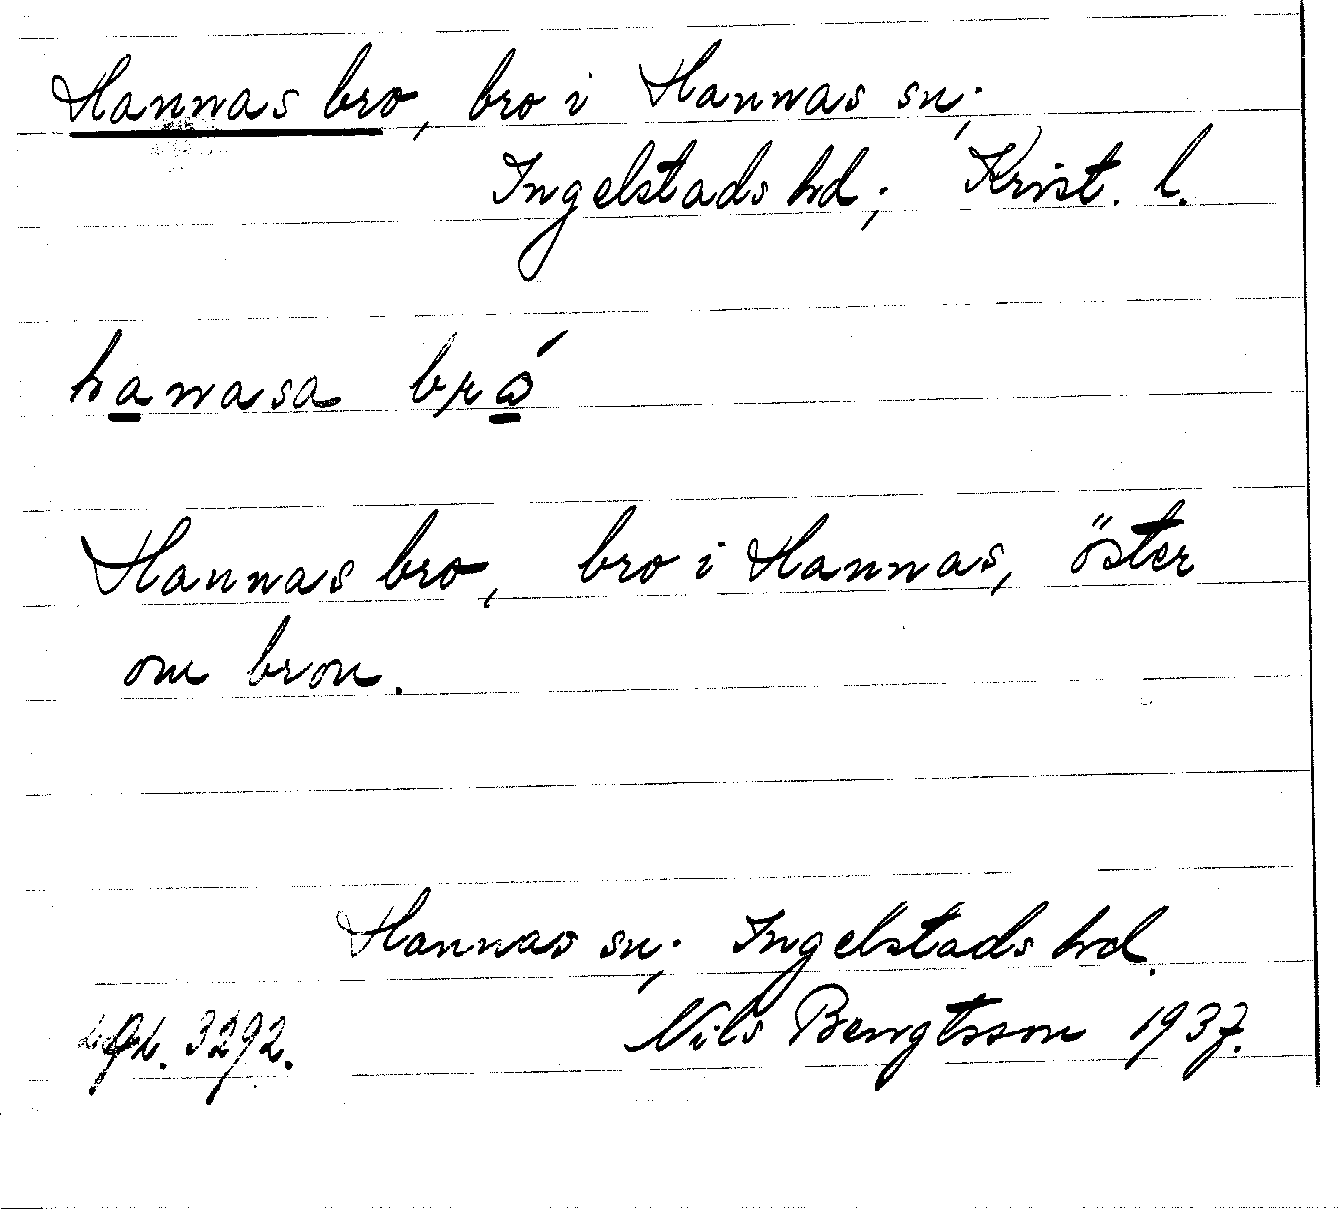 Hannas bro, bro i Hannas sn;
Ingelstads hd; Krist. l.
hanasa bró
Hannas bro, bro i Hannas, öster
om bron.
Hannas sn; Ingelstads hd.
3292. Nils Bengtsson 1937.